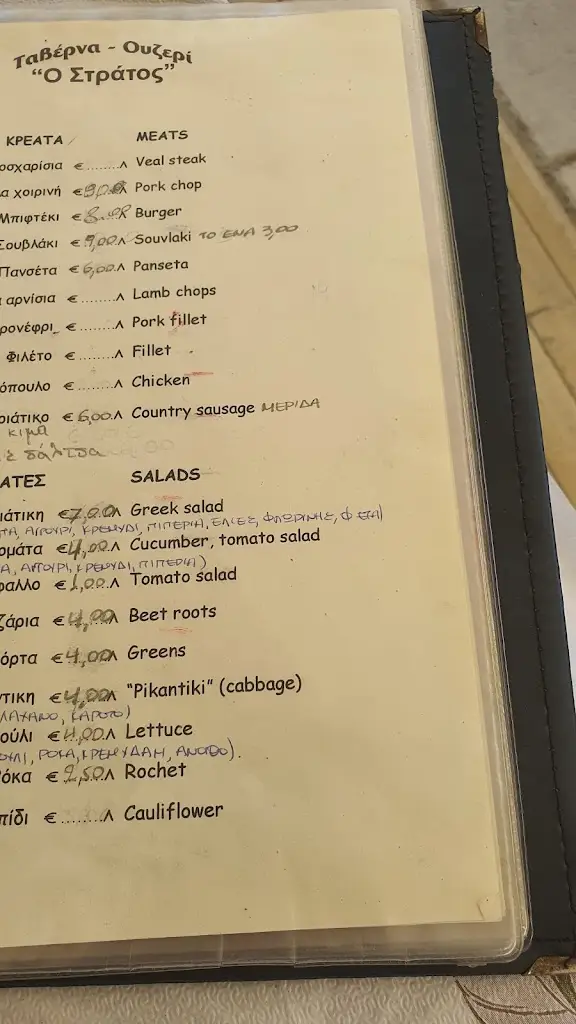 Ταβέρνα - Ουζερί
"Ο Στράτος"
ΚΡΕΑΤΑ MEATS
οσχαρίσια €........Λ Veal steak
α χοιρινή € Λ Pork chop
Μπιφτέκι € Λ Burger
Σουβλάκι €9,00Λ Souvlaki ΤΟ ΕΝΑ 3,00
Πανσέτα €6,00Λ Panseta
αρνίσια €........Λ Lamb chops
ρονέφρι €........Λ Pork fillet
Φιλέτο €........Λ Fillet
όπουλο €........Λ Chicken
ριάτικο €6,00Λ Country sausage ΜΕΡΙΔΑ
κιμά
σάλτσα
ΑΤΕΣ SALADS
ιάτικη €7,00Λ Greek salad
ΤΑ, ΑΓΓΟΥΡΙ, ΚΡΕΜΥΔΙ, ΠΙΠΕΡΙΑ, ΕΛΙΕΣ, ΦΛΩΡΙΝΗΣ, ΦΕΤΑ)
ομάτα €4,00Λ Cucumber, tomato salad
Α, ΑΓΓΟΥΡΙ, ΚΡΕΜΥΔΙ, ΠΙΠΕΡΙΑ)
φαλλο €1,00Λ Tomato salad
ζάρια €4,00Λ Beet roots
όρτα €4,00Λ Greens
ντικη €4,00Λ "Pikantiki" (cabbage)
ΛΑΧΑΝΟ, ΚΑΡΟΤΟ)
ούλι €4,00Λ Lettuce
ΡΟΚΑ, ΚΡΕΜΥΔΑΚΙ, ΑΝΗΘΟ).
όκα €2,50Λ Rochet
πίδι €........Λ Cauliflower